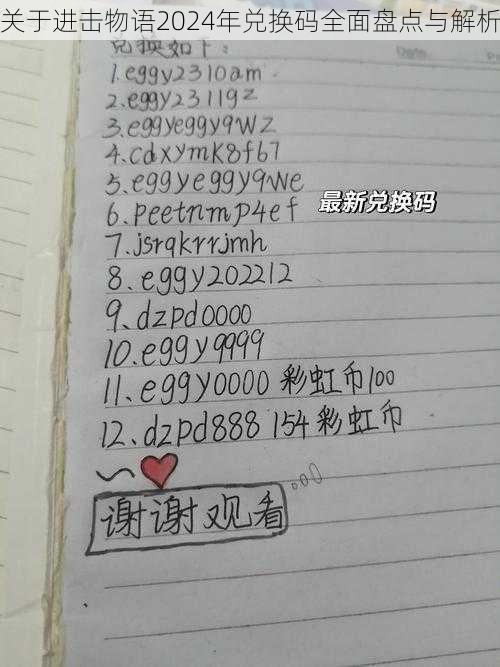 关于进击物语2024年兑换码全面盘点与解析
兑换如下:
Date
1.eggy2310am
2.eggy2311gz
3.eggyeggy9wz
4.cdxymk8f67
5.eggyeggy9we
6.peetnmp4ef
最新兑换码
7.jsrqkrrjmh
8.eggy202212
9、dzpd0000
10.eggy9999
11.eggy0000 彩虹币100
12.dzpd888 154 彩虹币
谢谢观看